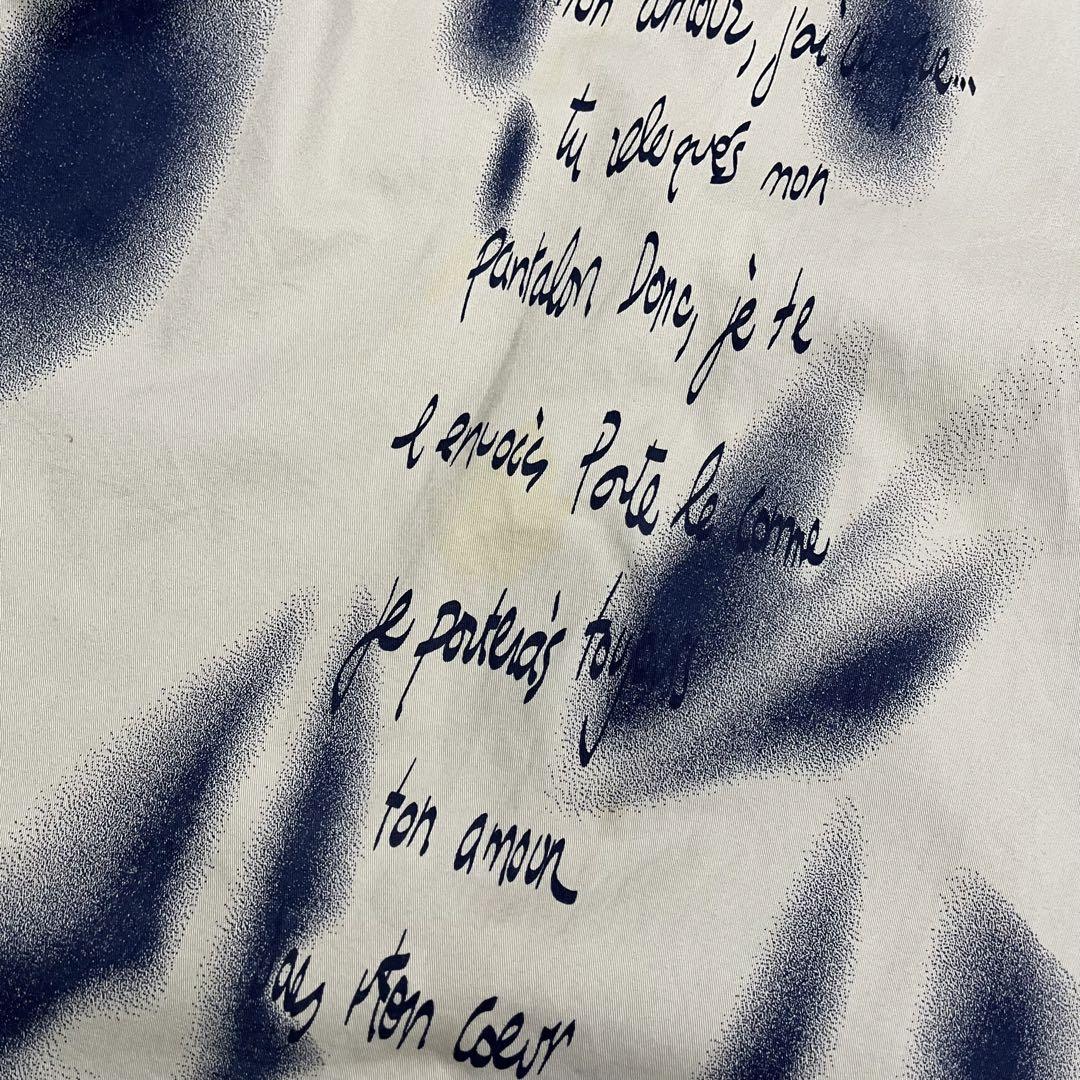 mon amour, j'ai vu que...
tu relequés mon
pantalon Donc, je te
l envois Porte le comme
je porterais toujours
ton amour
mon coeur